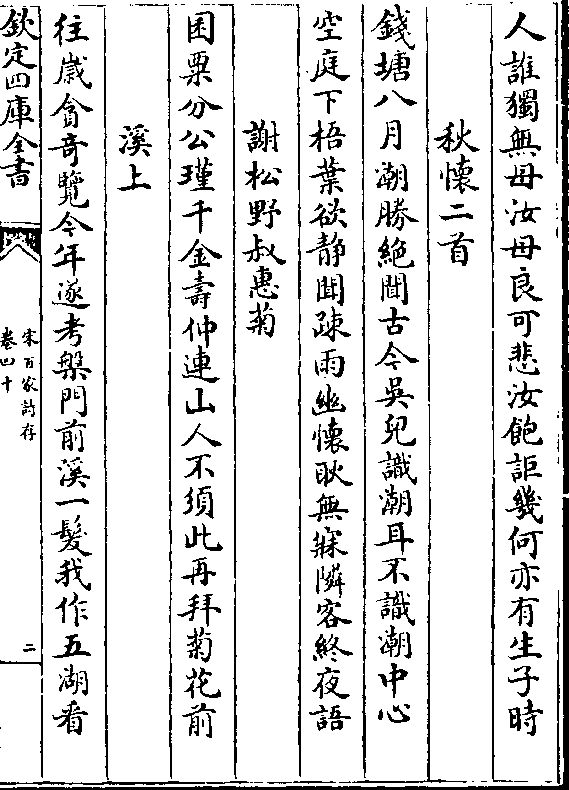 人誰獨無毋汝毋良可悲汝飽詎幾何亦有生子時
秋懷二首
錢塘八月潮勝絶聞古今吳兒識潮耳不識潮中心
空庭下梧葉欲静聞疎雨幽懷耿無寐隣客終夜語
謝松野叔惠菊
囷粟分公瑾千金壽仲連山人不須此再拜菊花前
溪上
往嵗貪竒覽今年遂考槃門前溪一髮我作五湖看
欽定四庫全書
宋百家詩存
卷四十
二